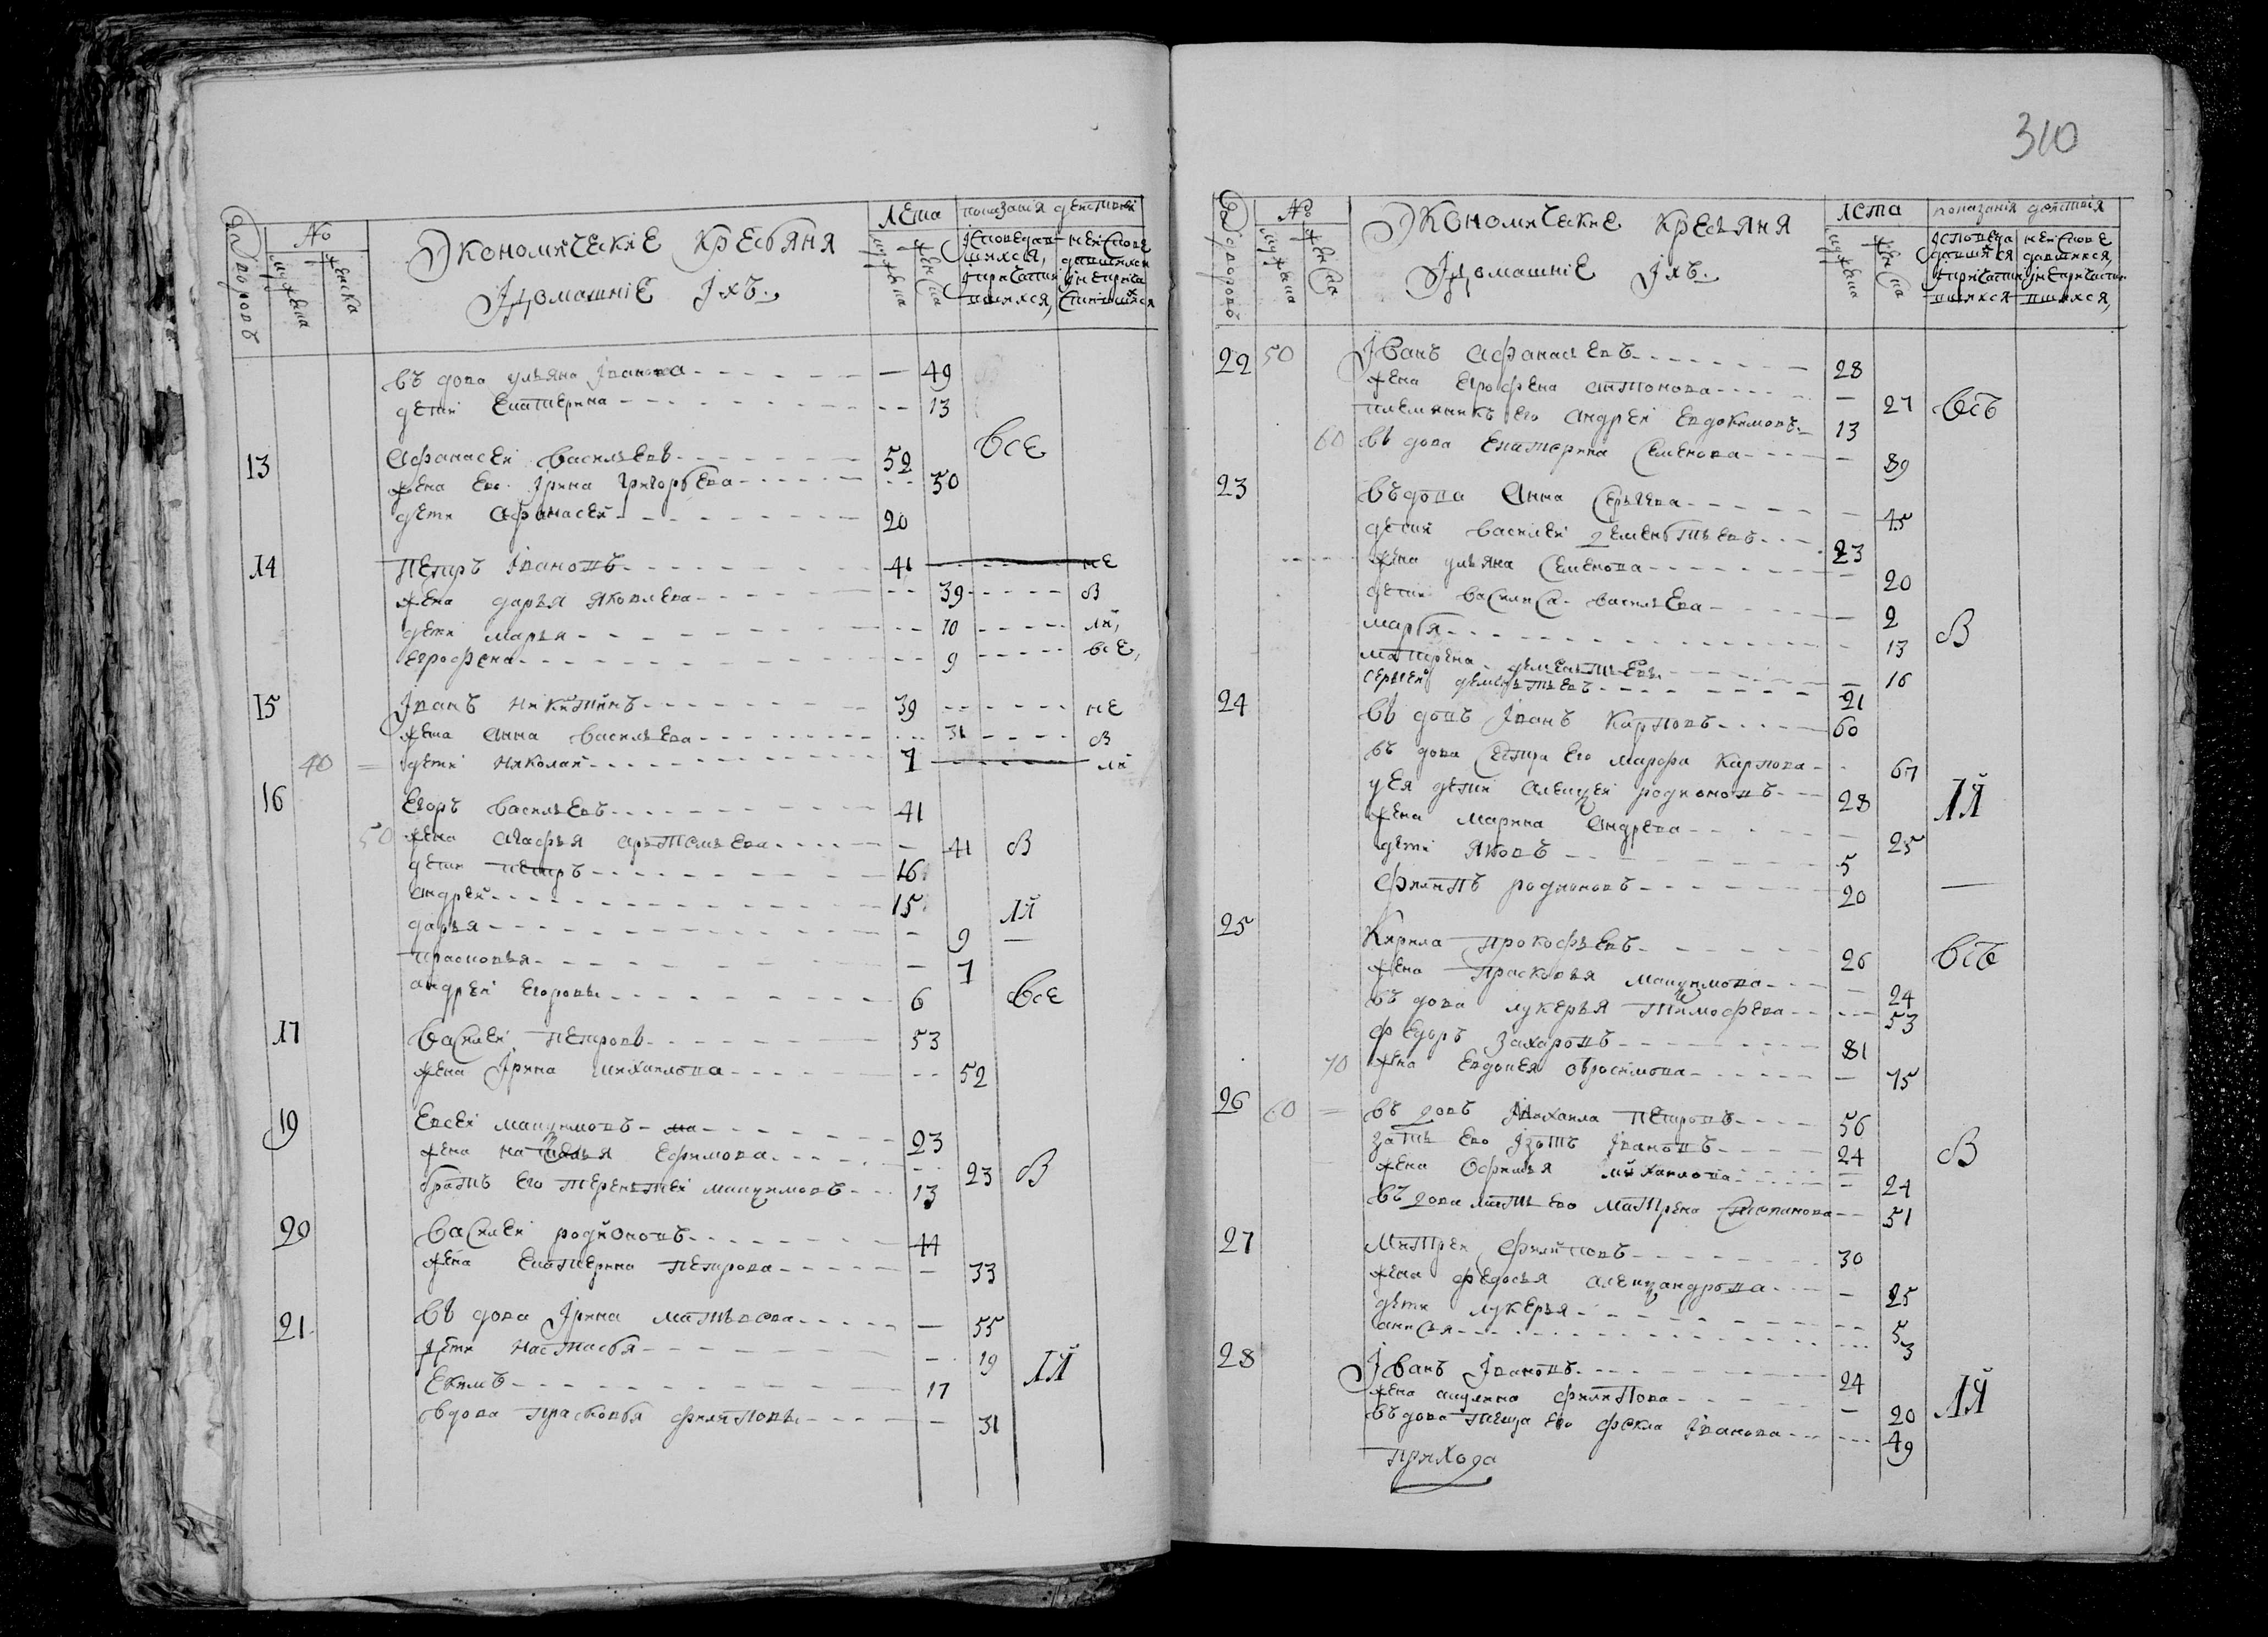 310
дворовъ № Экономические крестьяня Лета показания действий
мужеска женска мужеска женска исповедав неиспове
шихся, давшихся
и домашние ихъ. и причастив и непричас
шихся, тившихся
въ дова ульяна Iванова — 49
дети Екатерина -- 13
все
13 Афанасеи васильевъ 52
жена Ево Iрина григорьева -- 50
дети Афанасеи 20
14 Петръ Iвановъ 41 не
жена дарья яковлева -- 39 в
дети марья -- 10 ли,
Егрофена -- 9 все,
15 Iванъ никитинъ 39 не
жена Анна васильева 31 в
40 = дети николаи 7 ли
16 Егоръ васильевъ 41
50 жена Агафья артемьева — 41 в
дети петръ 16
Андреи 15 ЛИ
дарья — 9 —
прасковья — 7
андреи Егоровы 6 все
17 василеи петровъ 53
жена Iрина михаилова -- 52
19 Евсеи мацимовъ 23
жена наталья Ефимова 23 в
братъ Его терентеи мацимовъ 13
20 василеи родионовъ 44
жена Екатерина петрова — 33
21 въ дова Iрина матвеева — 55
дети настасья — 19 ЛИ
Екимъ 17
вдова прасковья филипова — 31
дворовъ № Экономические кресьяня лета показания действия
мужеска женска мужеска женска исповеда неиспове
вшихся давшихся,
и домашние ихъ. и причастив и непричастив
шихся шихся,
22 50 Iванъ афанасьевъ 28
жена Егрофена антонова — 27 всъ
племяникъ его андреи Евдокимовъ 13
60 въ дова Екатерина семенова — 89
23 въдова Анна Сергеева — 45
дети василеи дементьевъ 23
жена ульяна семенова — 20
дети василиса васильева — 2
марья 13 в
матрена дементьевы — 16
сергеи дементьевъ 21
24 въ довъ Iванъ карповъ 60
въ дова сестра его марфа карпова 67
у ея дети алецеи родионовъ 28 ЛИ
жена марина андрева — 25
дети яковъ 5
филипъ родионовъ 20 —
25 Кирила прокофьевъ 26 всъ
жена прасковья мацимова — 24
въ дова лукерья тимофева 53
федоръ захаровъ 81
70 жена Евдокея обросимова — 75
26 60 = въ довъ михаила петровъ 56
зать Ево Iзотъ Iвановъ 24 в
жена Офимья михаилова — 24
въ дова мать Ево матрена степанова 51
27 митреи филиповъ 30
жена федосья алецандрова — 25
дети лукерья -- 5
анисья 3
28 Iванъ Iвановъ 24
жена акулина филипова — 20 ЛИ
въ дова теща Ево фекла Iванова 49
прихода